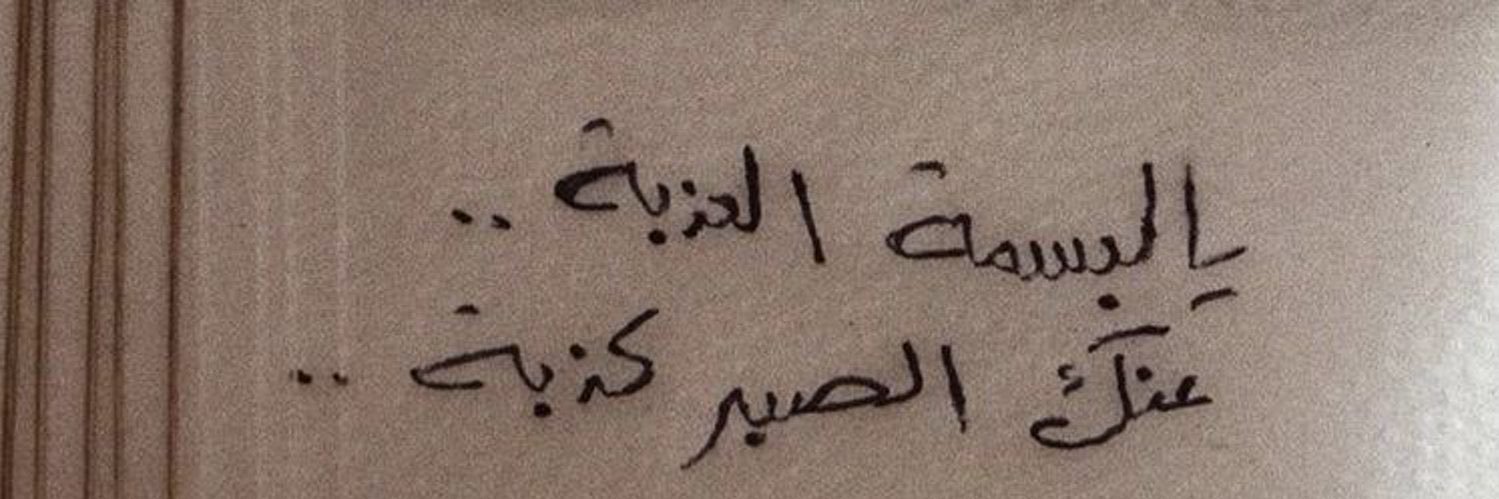 يالبسمة العذبة ..
عنك الصبر كذبة ..